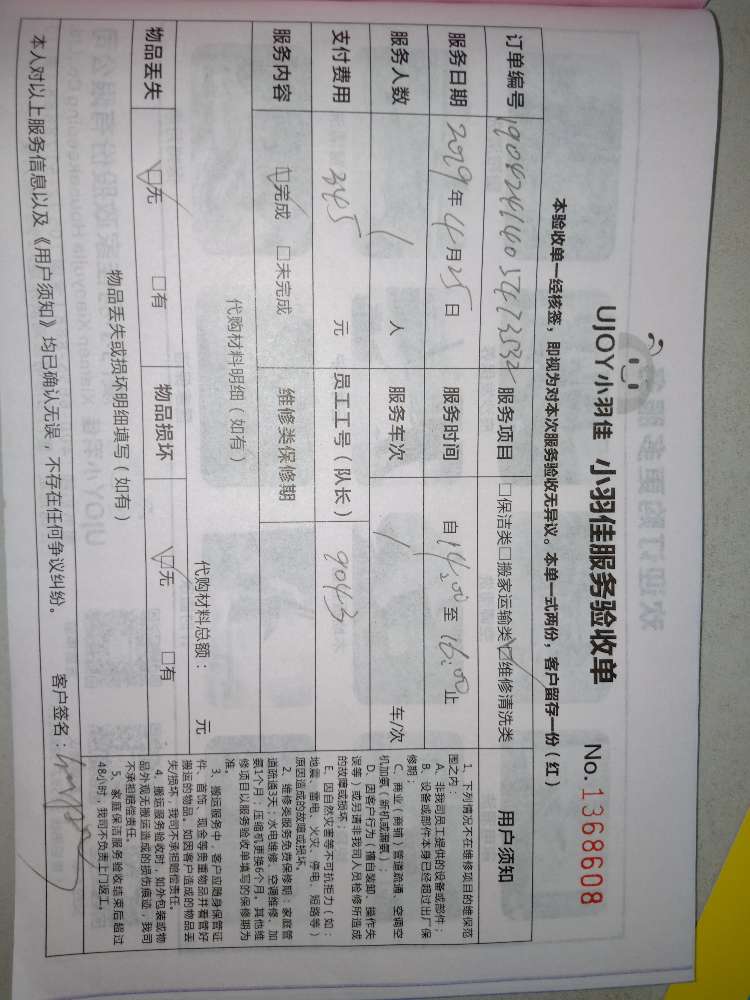 UJOY小羽佳 小羽佳服务验收单 No.1368608
本验收单一经核签，即视为对本次服务验收无异议。本单一式两份，客户留存一份（红）
订单编号 服务项目 □保洁类□搬家运输类☑维修清洗类 用户须知
服务日期 2019年4月25日 服务时间 自14:00至16:00止
服务人数 1 人 服务车次 1 车/次
支付费用 345 元 员工工号（队长） 9043
服务内容 ☑完成 □未完成 维修类保修期
代购材料明细（如有） 代购材料总额： 元
物品丢失 ☑无 □有 物品损坏 ☑无 □有
物品丢失或损坏明细填写（如有）
本人对以上服务信息以及《用户须知》均已确认无误，不存在任何争议纠纷。 客户签名：
1、下列情况不在维修项目的维保范
围之内：
A、非我司员工提供的设备或部件；
B、设备或部件本身已经超过出厂保
修期；
C、商业（商铺）管道疏通、空调空
机加氟（新机或漏氟）；
D、因客户行为（擅自装卸、操作失
误等）或另请非我司人员检修所造成
的故障或损坏；
E、因自然灾害等不可抗拒力（如：
地震、雷电、火灾、停电、短路等）
原因造成的故障或损坏。
2、维修类服务免费保修期：家庭管
道疏通3天；水电维修、空调维修、加
氟1个月；压缩机更换6个月。其他维
修项目以服务验收单填写的保修期为
准。
3、搬运服务中，客户应随身保管证
件、首饰、现金等贵重物品并看管好
搬运的物品。如因客户造成的物品丢
失/损坏，我司不承担赔偿责任。
4、搬运服务验收时，如外包装或物
品外观无搬运造成的损伤痕迹，我司
不承担赔偿责任。
5、家庭保洁服务验收结束后超过
48小时，我司不负责上门返工。